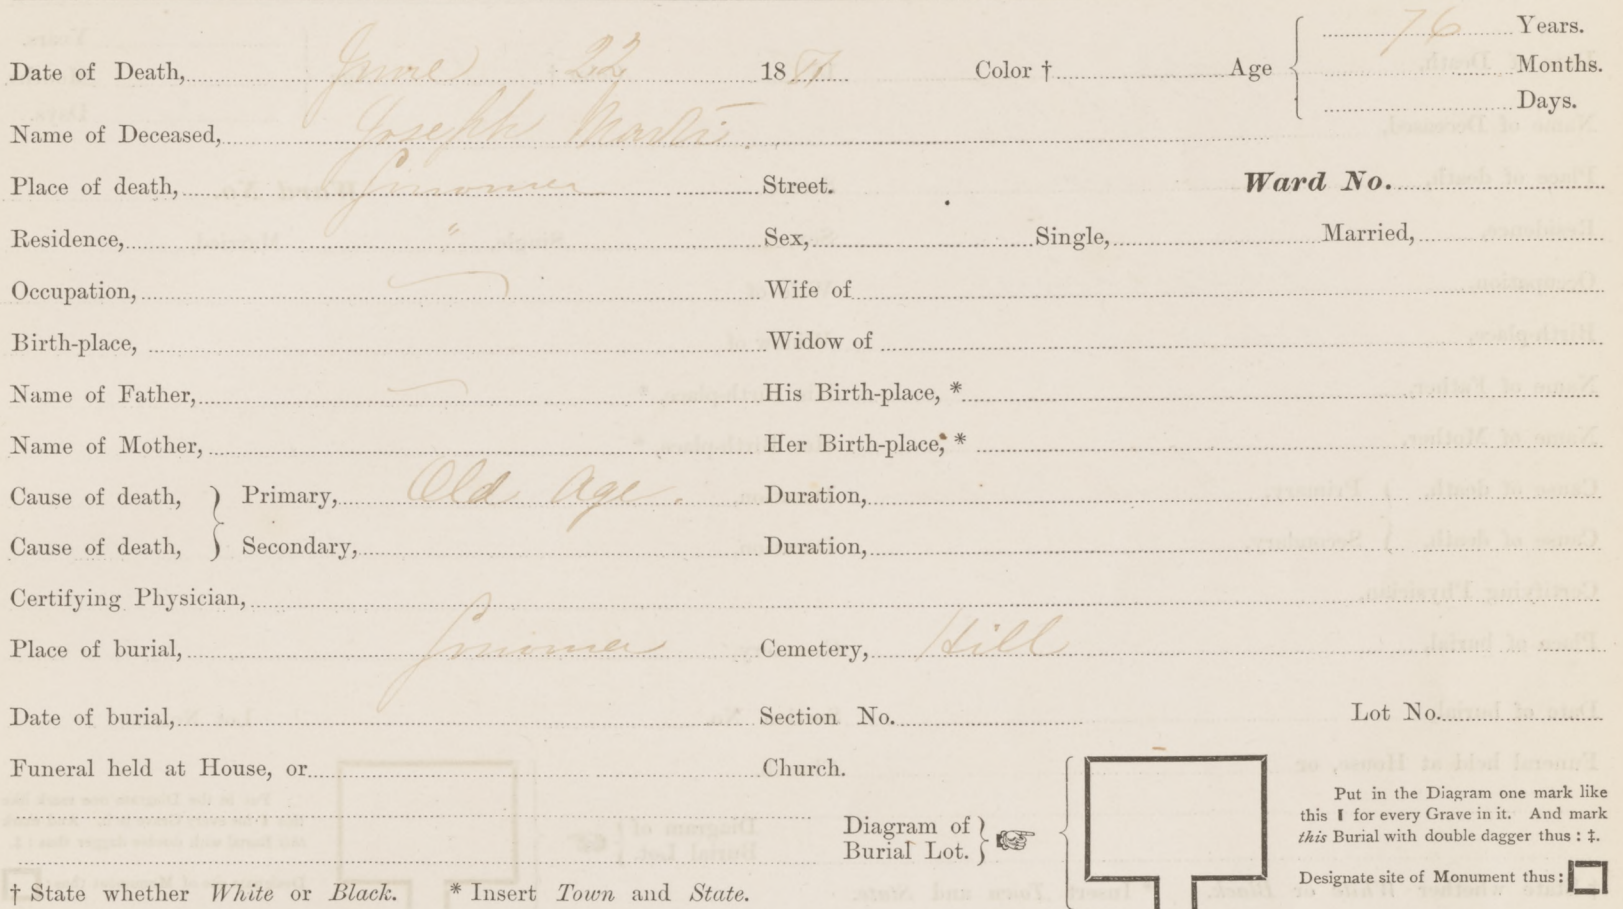 Date of Death, June 22 18 Color † Age 76 Years.
Months.
Days.
Name of Deceased, Joseph Martin.
Place of death, Street. Ward No.
Residence, " Sex, Single, Married,
Occupation, Wife of
Birth-place, Widow of
Name of Father, His Birth-place, *
Name of Mother, Her Birth-place, *
Cause of death, } Primary, Old Age. Duration,
Cause of death, } Secondary, Duration,
Certifying Physician,
Place of burial, Cemetery, Hill
Date of burial, Section No. Lot No.
Funeral held at House, or Church.
Diagram of
Burial Lot. }
Put in the Diagram one mark like
this ❙ for every Grave in it. And mark
this Burial with double dagger thus : ‡.
Designate site of Monument thus :
† State whether White or Black. * Insert Town and State.